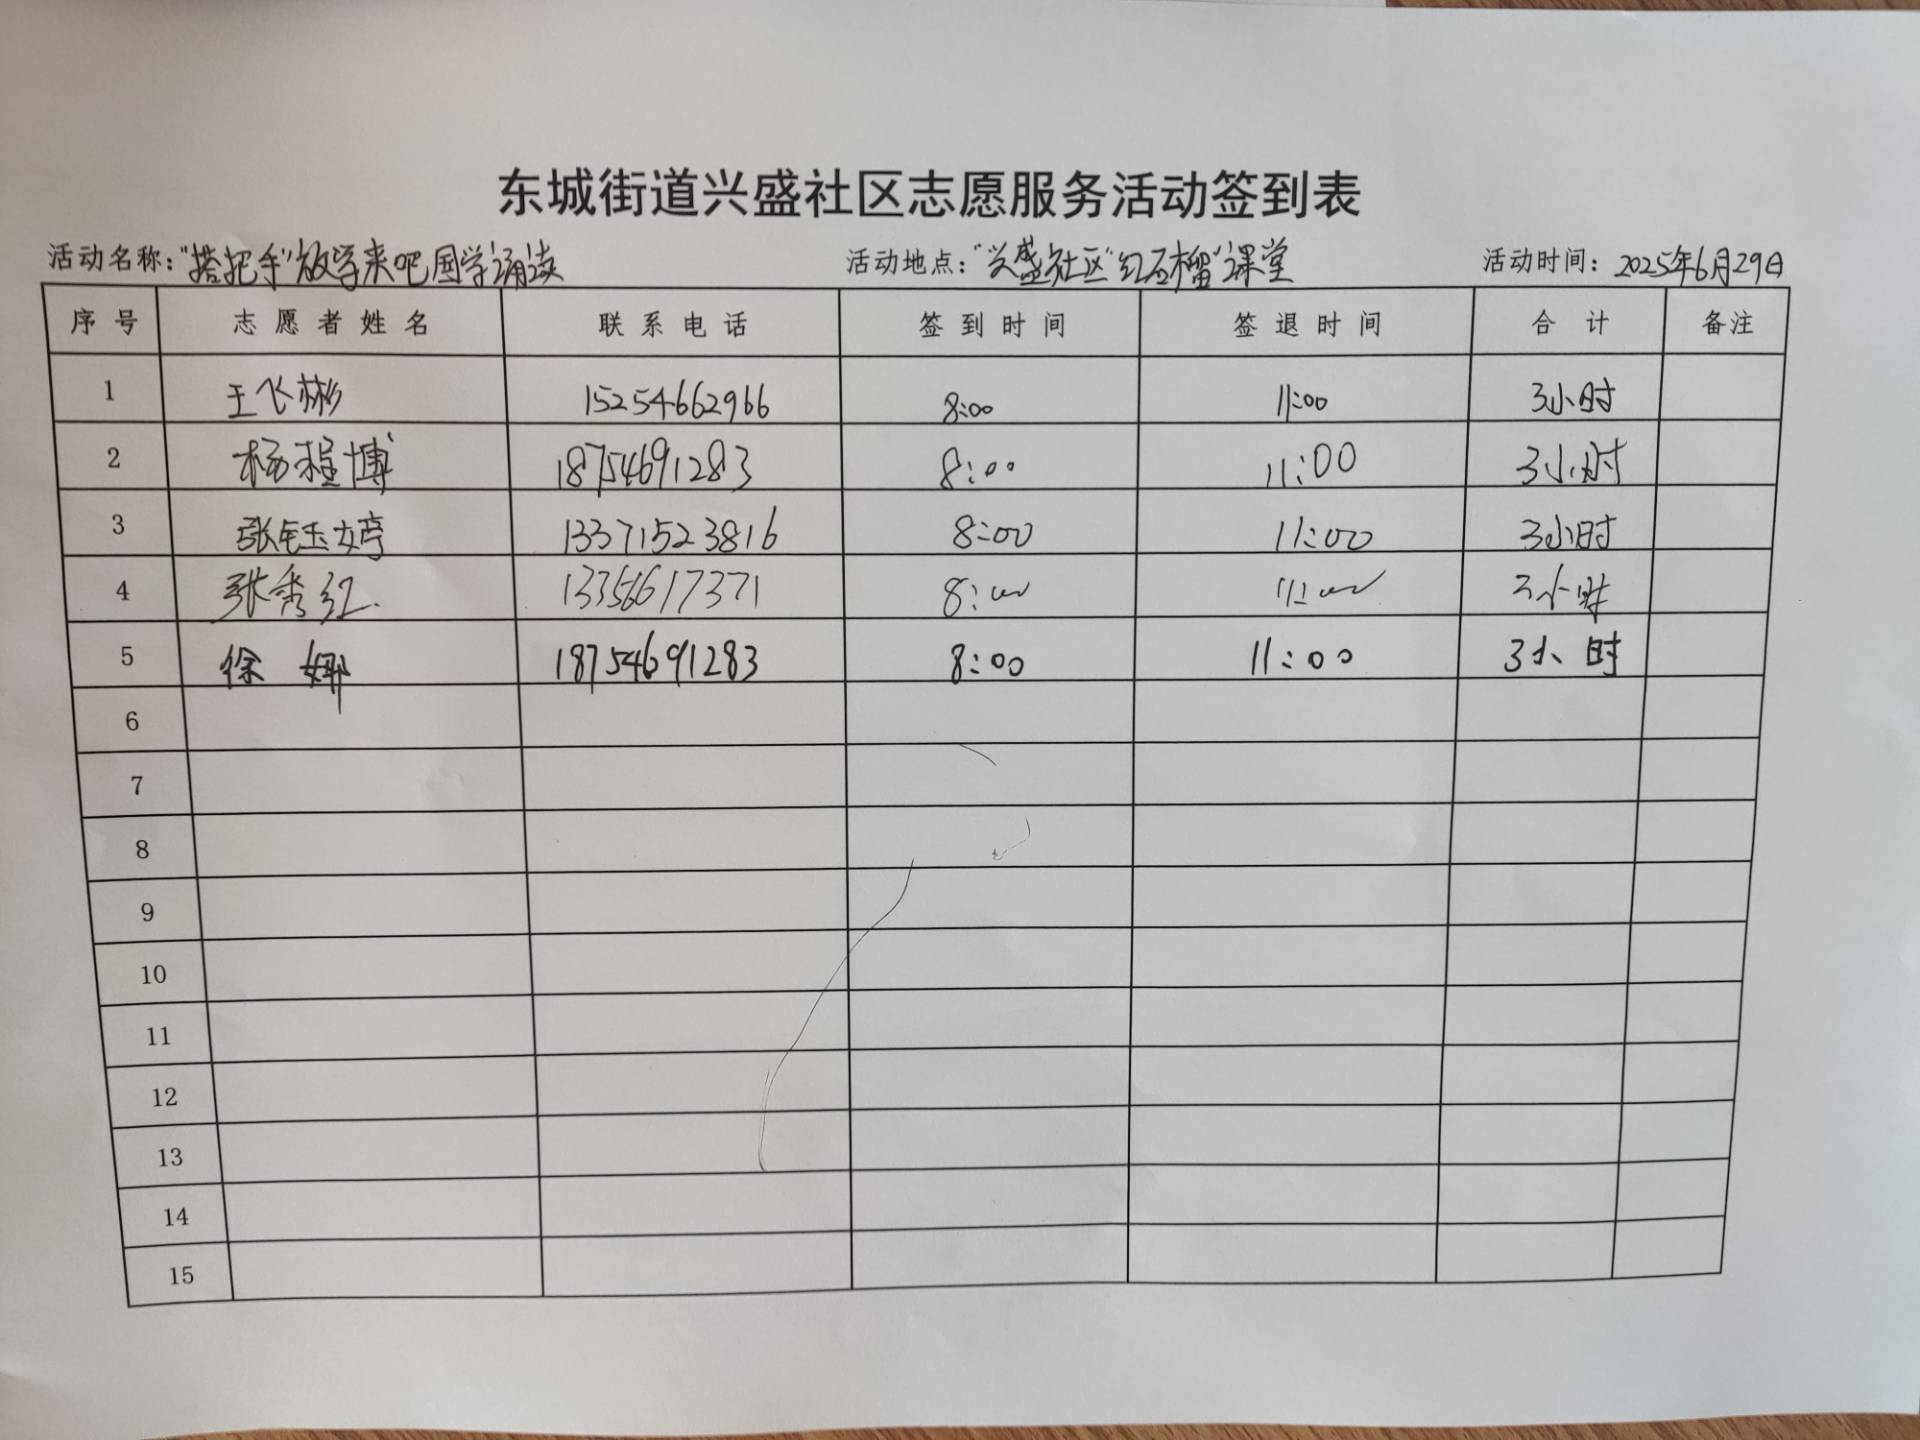 东城街道兴盛社区志愿服务活动签到表
活动名称："搭把手"放学来吧国学诵读 活动地点："兴盛社区"红石榴"课堂 活动时间：2025年6月29日
序号 志愿者姓名 联系电话 签到时间 签退时间 合计 备注
1 王飞彬 15254662966 8:00 11:00 3小时
2 杨程博 18754691283 8:00 11:00 3小时
3 张钰婷 13371523816 8:00 11:00 3小时
4 张秀红 13356617371 8:00 11:00 3小时
5 徐娜 18754691283 8:00 11:00 3小时
6
7
8
9
10
11
12
13
14
15